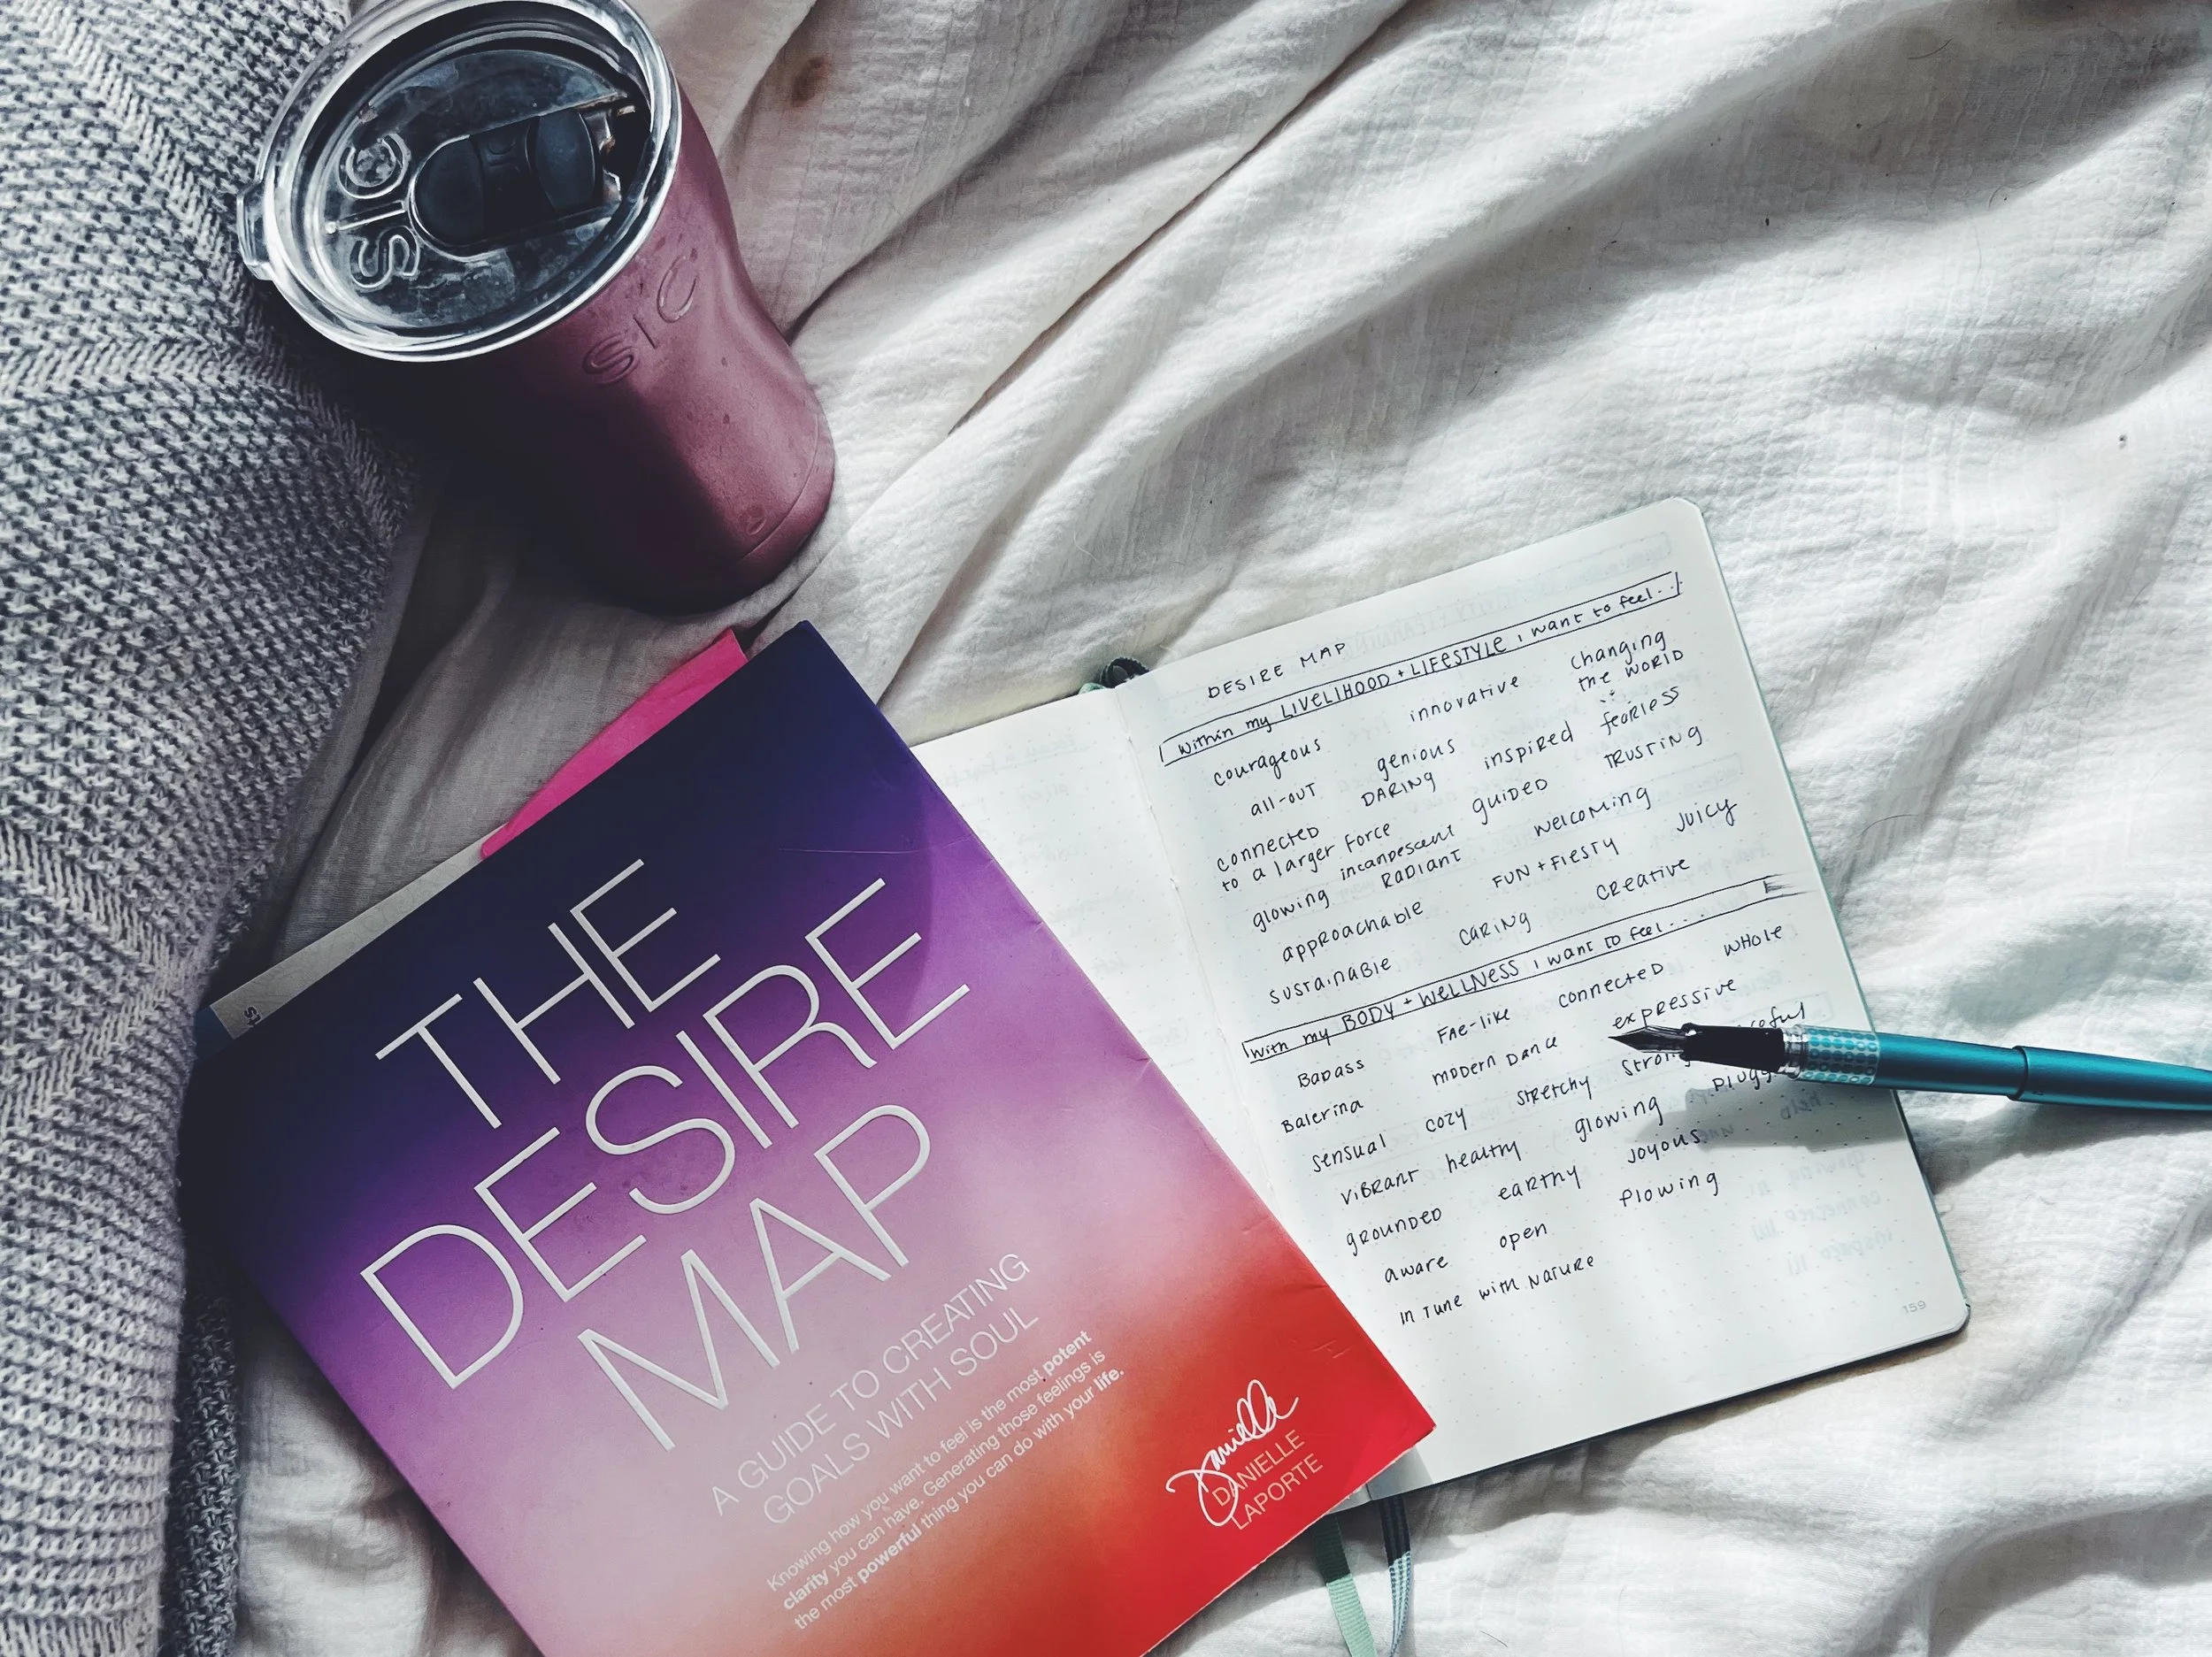 SIC
SIC
THE
DESIRE
MAP
A GUIDE TO CREATING
GOALS WITH SOUL
Knowing how you want to feel is the most potent
clarity you can have. Generating those feelings is
the most powerful thing you can do with your life.
Danielle
DANIELLE
LAPORTE
DESIRE MAP
within my LIVELIHOOD + LIFESTYLE i want to feel...
courageous innovative changing
the WORLD
all-out genious inspired fearless
DARING
connected guided TRUSTING
to a larger force
glowing incandescent welcoming juicy
RADIANT
approachable FUN + FIESTY
sustainable caring creative
with my BODY + WELLNESS i want to feel....
Badass Fae-like connected whole
Balerina modern dance expressive
sensual cozy stretchy
vibrant healthy glowing
grounded earthy joyous
aware open flowing
in tune with nature
159